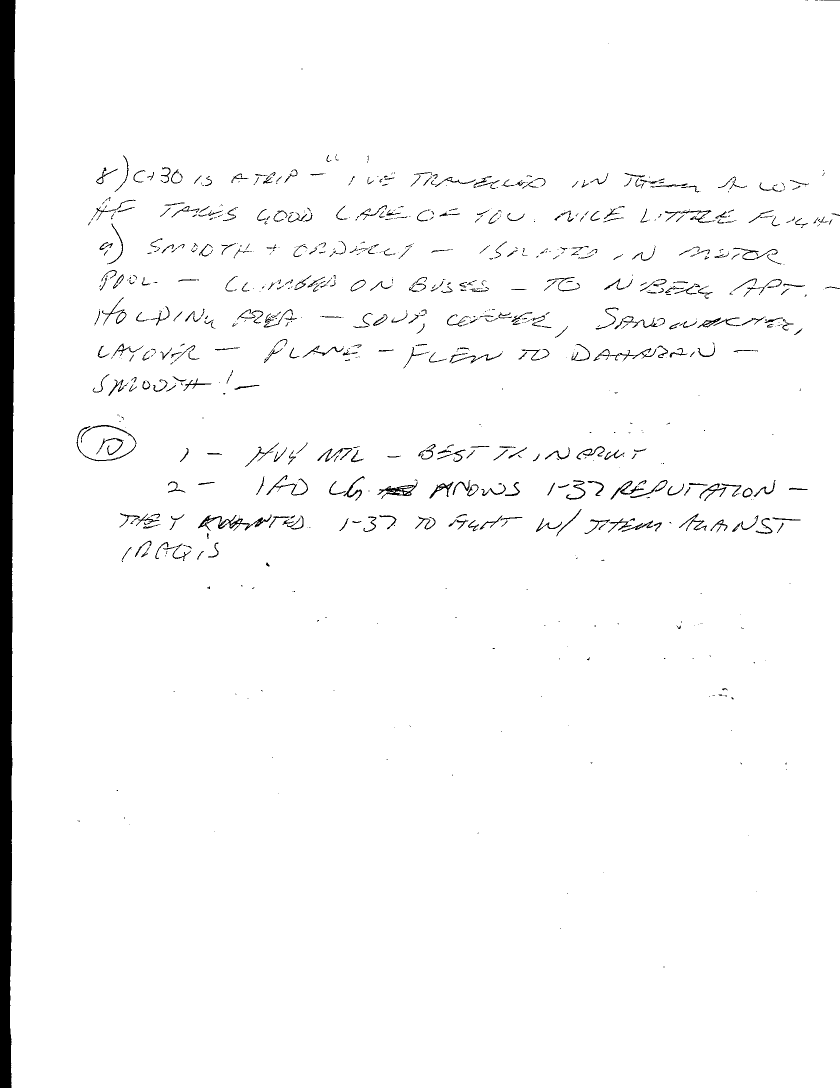 8) C-130 IS A TRIP — "I'VE TRAVELLED IN THEM A LOT"
AF TAKES GOOD CARE OF YOU. NICE LITTLE FLIGHT
9) SMOOTH + ORDERLY — ISOLATED IN MOTOR
POOL — CLIMBED ON BUSES — TO N'BERG APT. —
HOLDING AREA — SOUP, COFFEE, SANDWICHES,
LAYOVER — PLANE — FLEW TO DAHARAN —
SMOOTH! —
10 1 — HVY MTL — BEST TK IN ARMY
2 — 1AD CG KNOWS 1-37 REPUTATION —
THEY WANTED 1-37 TO FIGHT W/ THEM AGAINST
IRAQIS